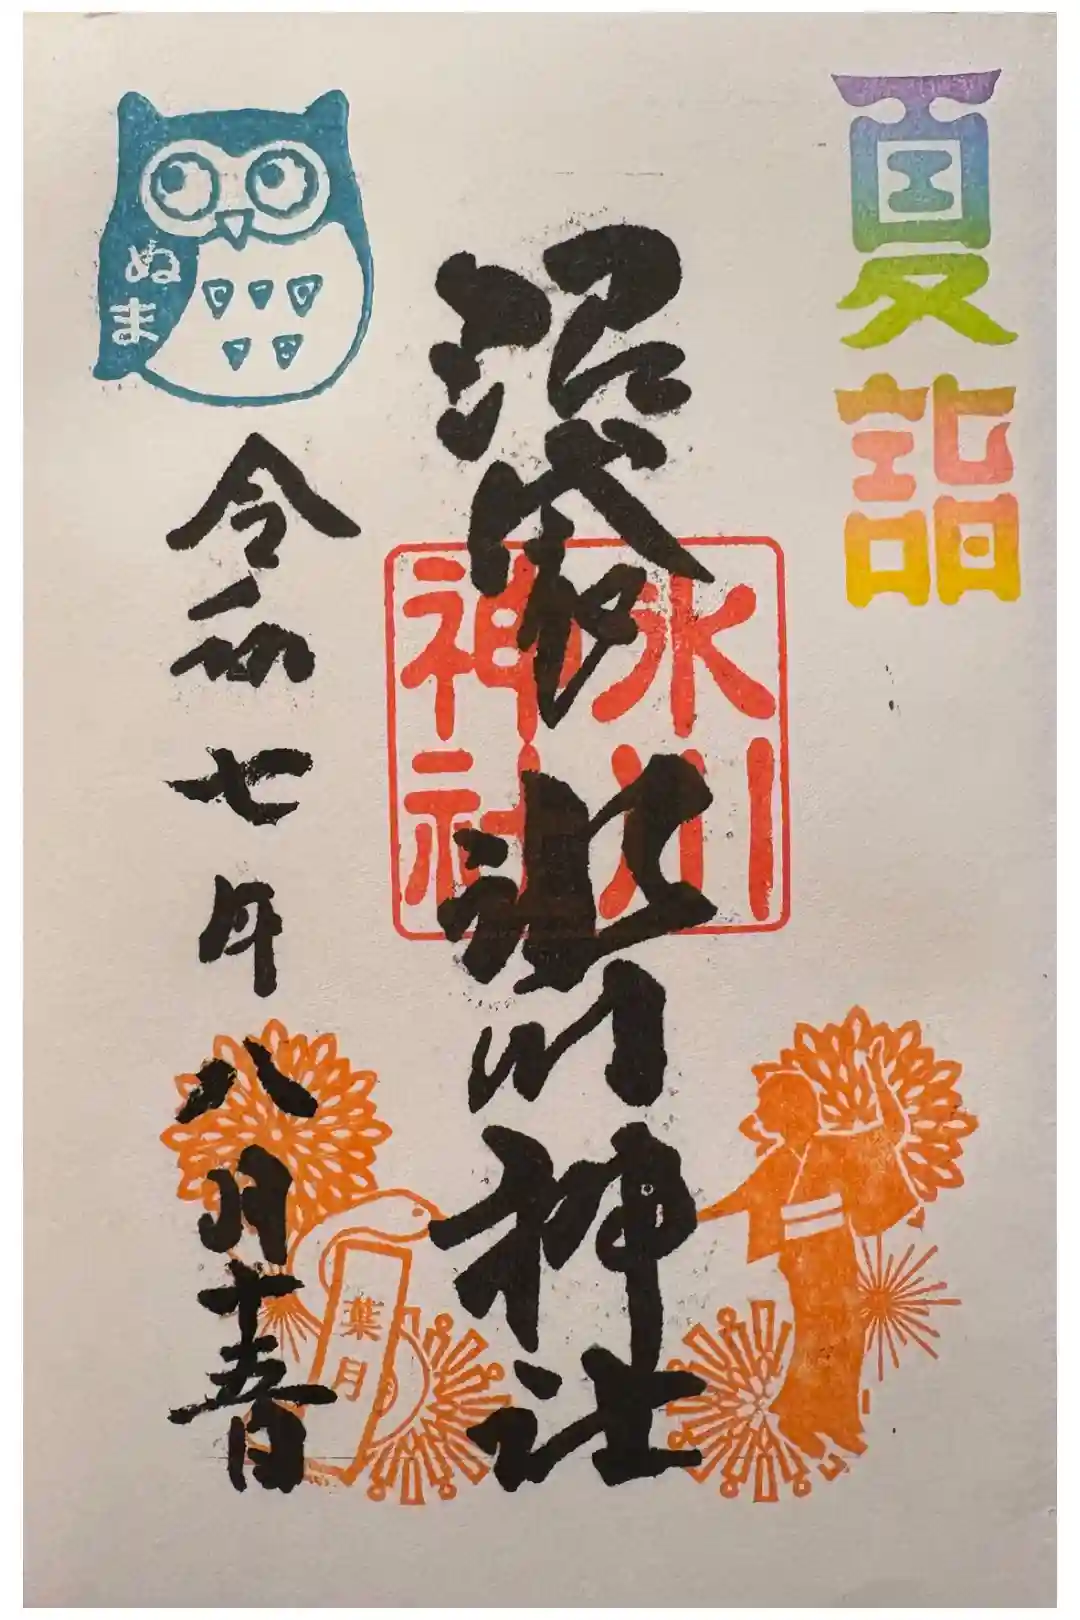 夏詣
沼袋氷川神社
氷川
神社
ぬま
令和七年
八月十五日
葉月